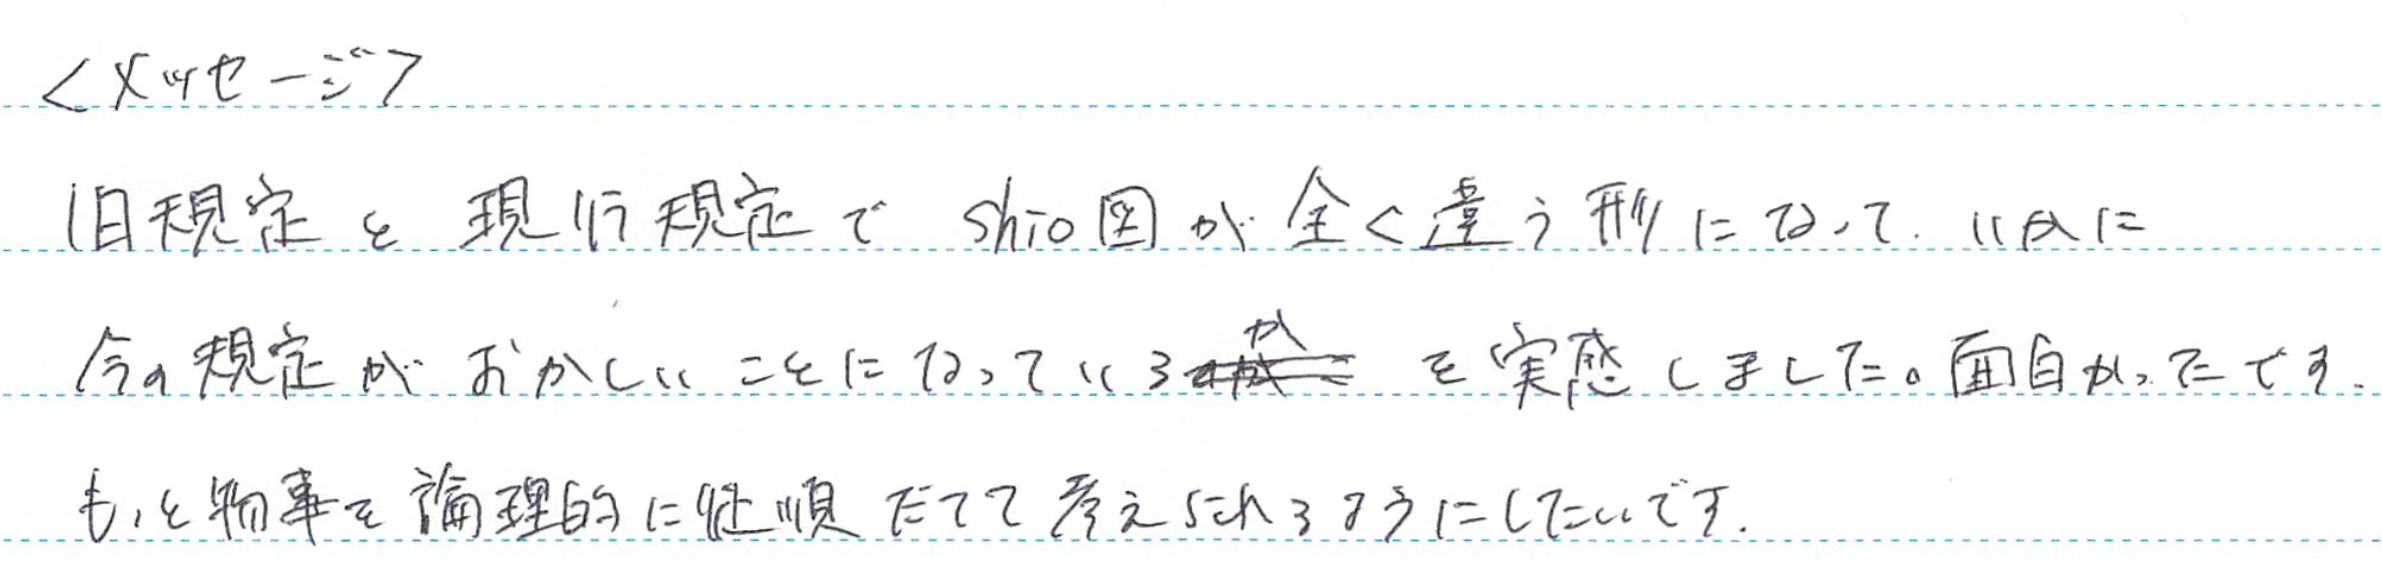 <メッセージ>
旧規定と現行規定でshio図が全く違う形になって、いかに
今の規定がおかしいことになっているかを実感しました。面白かったです。
もっと物事を論理的に順だてて考えられるようにしたいです。